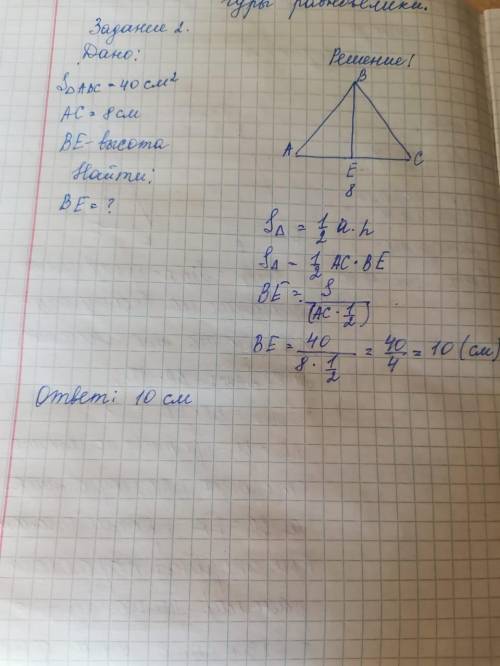 гуры равновелики.
Задание 2.
Дано:
S△ABC = 40 см²
AC = 8 см
BE - высота
Найти:
BE = ?
Решение!
B
A
E
C
8
S△ = 1/2 a · h
S△ = 1/2 AC · BE
BE = S / (AC · 1/2)
BE = 40 / 8 · 1/2 = 40/4 = 10 (см)
Ответ: 10 см